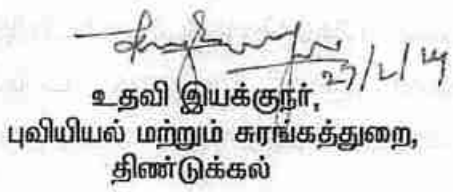 27/2/14
உதவி இயக்குநர்,
புவியியல் மற்றும் சுரங்கத்துறை,
திண்டுக்கல்